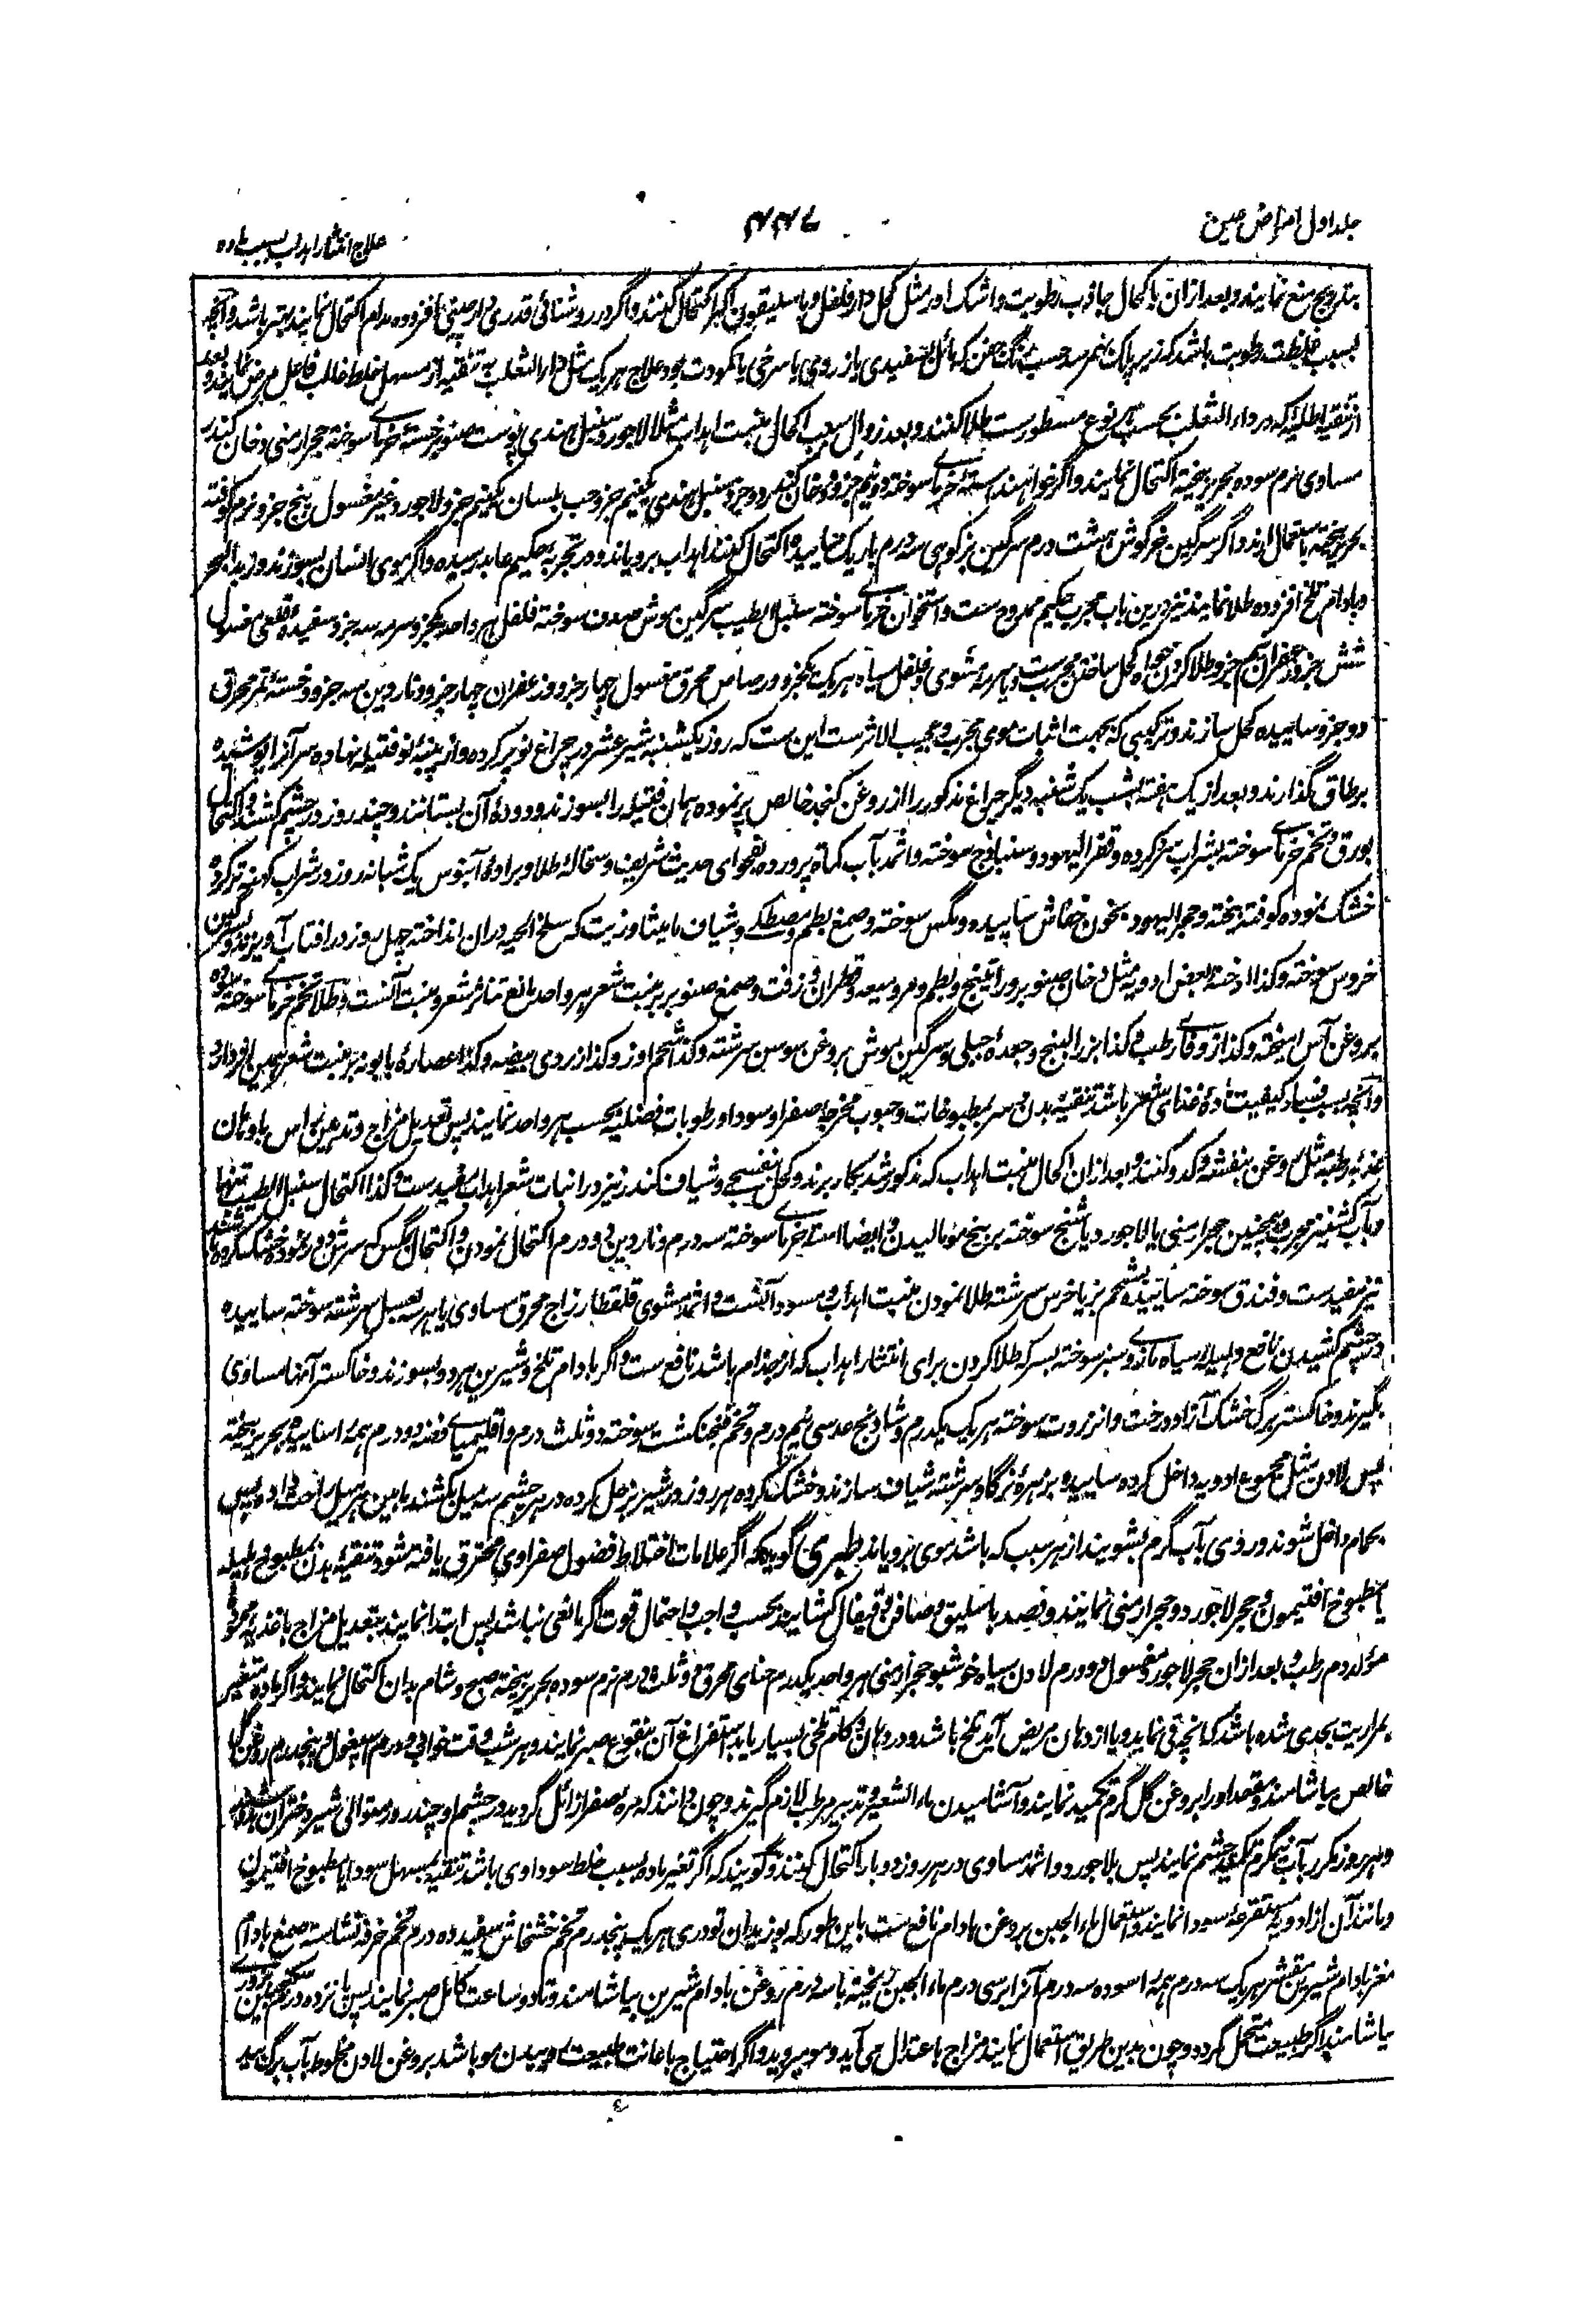 جلد اول امراض عین
۴۴۷
علاج انتشار اهداب بسبب ماده
بتدریج منع نمایند و بعد ازان با کحال جاذب رطوبت و اشک آور مثل کحل دار فلفل و باسلیقون اکبر اکتحال کنند و اگر در روشنائی قدری دارچینی افزوده مدام اکتحال نمایند بهتر باشد و آنچه
بسبب غلظت رطوبت باشد که زیر پلک بهم رسد حسب رنگ جفن که مائل بسفیدی یا زردی یا سرخی یا کمودت بود علاج هر یک مثل داء الثعلب به تنقیه از مسهل خلط غالب فاعل مرض نمایند و بعد
از تنقیه اطلیه که در داء الثعلب بحسب هر نوع مسطور ست طلا کنند و بعد زوال سبب اکحال منبت اهداب مثلا لاجورد و سنبل هندی پوست صنوبر خسته خرمای سوخته حجر ارمنی دخان کندر
مساوی نرم سوده بحریر بیخته اکتحال نمایند و اگر خواهند خسته خرمای سوخته و نیم جزو دخان کندر دو جزو سنبل هندی یکنیم جزو حب بلسان یکنیم جزو لاجورد غیر مغسول پنج جزو نرم کوفته
بحریر بیخته باستعمال آرند و اگر سرگین خرگوش هشت درم سرگین بز کوهی سه درم باریک ساییده اکتحال کنند اهداب برویاند و در تجربه حکیم عابد رسیده و اگر موی انسان بسوزند و زبد البحر
و بادام تلخ افزوده طلا نمایند نیز درین باب مجرب حکیم ممدوح ست و استخوان خرمای سوخته سنبل الطیب سرگین موش صدف سوخته فلفل هر واحد یکجزو سرمه سه جزو سفیده قلعی مغسول
شش جزو زعفران نیم جزو طلا کردن همراه کحل ساختن مجرب ست و یا سرمه مشوی و فلفل سیاه هر یک یکجزو و رصاص محرق مغسول چهار جزو و زعفران چهار جزو و ناردین سه جزو و خسته تمر محرق
دو جزو ساییده کحل سازند و ترکیبی که بجهت اثبات موی مجرب و عجیب الاثر ست این ست که روز یکشنبه شیر عشر در چراغ نو پر کرده و از پنبه نو فتیله نهاده سر آنرا پوشیده
بر طاق گذارند و بعد از یک هفته بشب یک شنبه دیگر چراغ مذکور را از روغن کنجد خالص پر نموده همان فتیله را بسوزند و دوده آن بستانند و چند روز در چشم کشند و اکتحال
بورق و تخم خرمای سوخته بشراب تر کرده و قفر الیهود و سنباذج سوخته و اثمد بآب کماة پرورده بفحوای حدیث شریف و سحاله طلا و براده آبنوس یک شبانه روز در شراب کهنه تر کرده
خشک نموده کوفته بیخته و حجر الیهود بخون خفاش ساییده و مگس سوخته و صمغ بطم و مصطکی و شیاف مامیثا و زیت که سلخ الحیه دران انداخته چهل روز در آفتاب آویزند و سرگین
خروس سوخته و کذا دخنه بعض ادویه مثل دخان صنوبر و راتینج و بطم و مر و میعه و قطران و زفت و صمغ صنوبر بر منبت شعر هر واحد مانع تناثر شعر و منبت آنست و طلا تخم خرمای سوخته سوده
بروغن آس آمیخته و کذا زوفای رطب و کذا بزر البنج و جعده جبلی و سرگین موش بروغن سوسن سرشته و کذا شحم اوز و کذا زردی بیضه و کذا عصاره بابونه بر منبت شعر همین اثر دارد
و آنچه بسبب فساد کیفیت ماده غذای شعر باشد تنقیه بدن و سر بمطبوخات و حبوب مخرجه صفرا و سودا و رطوبات فضلیه بحسب هر واحد نمایند پس تعدیل مزاج و تدهین راس بادهان
عذبه رطبه مثل روغن بنفشه و کدو کنند و بعد ازان اکحال منبت اهداب که مذکور شد بکار برند و کحل بنفسجی و شیاف کندر نیز در انبات شعر اهداب مفید ست و کذا اکتحال سنبل الطیب تنها
و بآب کشنیز مجرب و همچنین حجر ارمنی یا لاجورد یا شنج سوخته بر بیخ مو مالیدن و ایضا استه خرمای سوخته سه درم و ناردین دو درم اکتحال نمودن و اکتحال مگس که سرش دور نموده خشک کرده باشند
نیز مفید ست و فندق سوخته ساییده بشحم بز یا خرس سرشته طلا نمودن منبت اهداب و مسود آنست و اثمد مشوی قلقطار زاج محرق مساوی یا هر سه بعسل سرشته سوخته ساییده
در چشم کشیدن نافع و هلیله سیاه مازو سبز سوخته بسرکه طلا کردن برای انتشار اهداب که از جذام باشد نافع ست و اگر بادام تلخ و شیرین هر دو بسوزند و خاکستر آنها مساوی
بگیرند و خاکستر برگ خشک آزاد درخت و انزروت سوخته هر یک یکدرم و شادنج عدسی نیم درم و تخم فنجنکشت سوخته دو ثلث درم و اقلیمیای فضه دو درم همه را ساییده بحریر بیخته
پس لادن مثل مجموع ادویه داخل کرده ساییده بزهره نر گاو سرشته شیاف سازند و خشک کرده هر روز در شیر بز حل کرده در هر چشم سه میل بکشند مابین هر میل راحت داده پس
بحمام داخل شوند و روی بآب گرم بشویند از هر سبب که باشد موی برویاند طبری گوید که اگر علامات اختلاط فضول صفراوی محترق یافته شود تنقیه بدن بمطبوخ هلیله
یا مطبوخ افتیمون و حجر لاجورد و حجر ارمنی نمایند و فصد باسلیق و صافن و قیفال گشایند بحسب واجب و احتمال قوت اگر مانعی نباشد پس ابتدا نمایند بتعدیل مزاج باغذیه
مولد دم رطب و بعد ازان حجر لاجورد مغسول دو درم لادن سیاه خوشبو حجر ارمنی هر واحد یکدرم حنای محرق دو ثلث درم نرم سوده بحریر بیخته صبح و شام بدان اکتحال نمایند و اگر ماده متغیر
بمراریت بحدی شده باشد که آنچه قی نماید و یا از دهان مریض آید تلخ باشد و در دهان و کام تلخی بسیار یابد استفراغ آن بنقوع صبر نمایند و هر شب وقت خواب دو درم اسپغول و پنجدرم روغن گل
خالص بیاشامند و مقعد او را بروغن گل گرم تکمید نمایند و آشامیدن ماء الشعیر و تدبیر مرطب لازم گیرند و چون دانند که مره صفرا زائل گردید در چشم او چند روز متوالی شیر دختران بدوشند
و هر روز مکرر بآب نیمگرم تکمید چشم نمایند پس بلاجورد و اثمد مساوی در هر روز دو بار اکتحال کنند و گویند که اگر تغیر ماده بسبب خلط سوداوی باشد تنقیه بمسهل سودا یا مطبوخ افتیمون
و مانند آن از ادویه مستفرغه سودا نمایند و استعمال ماء الجبن بروغن بادام نافع ست باین طور که بوزیدان تودری هر یک پنجدرم تخم خشخاش سفید ده درم تخم خرفه نشاسته صمغ بادام
مغز بادام شیرین مقشر هر یک سه درم همه را سوده سه درم آنرا بر سی درم ماء الجبن ریخته با سه درم روغن بادام شیرین بیاشامند و تا دو ساعت کامل صبر نمایند پس پانزده درم سکنجبین بزوری
بیاشامند اگر طبیعت متحمل گردد و چون بدین طریق استعمال نمایند مزاج باعتدال می آید و مو میروید و اگر احتیاج باعانت طبیعت در رسیدن مو باشد بروغن لادن مخلوط بآب برگ بید